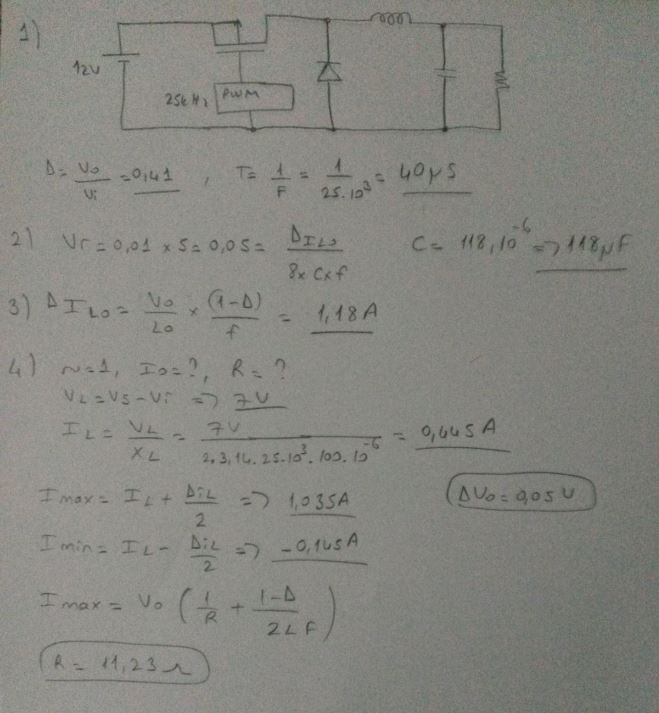 1)
12V
25kHz PWM
D = Vo/Vi = 0,41 , T = 1/F = 1/25.10³ = 40µS
2) Vr = 0,01 x 5 = 0,05 = ΔILo/8xCxf C = 118,10⁻⁶ => 118µF
3) ΔILo = Vo/Lo x (1-D)/f = 1,18A
4) n=1, Io=?, R=?
VL = Vs-Vi => 7V
IL = VL/XL = 7V/2.3,14.25.10³.100.10⁻⁶ = 0,445A
Imax = IL + ΔiL/2 => 1,035A ΔVo = 0,05V
Imin = IL - ΔiL/2 => -0,145A
Imax = Vo (1/R + 1-D/2LF)
R = 11,23Ω